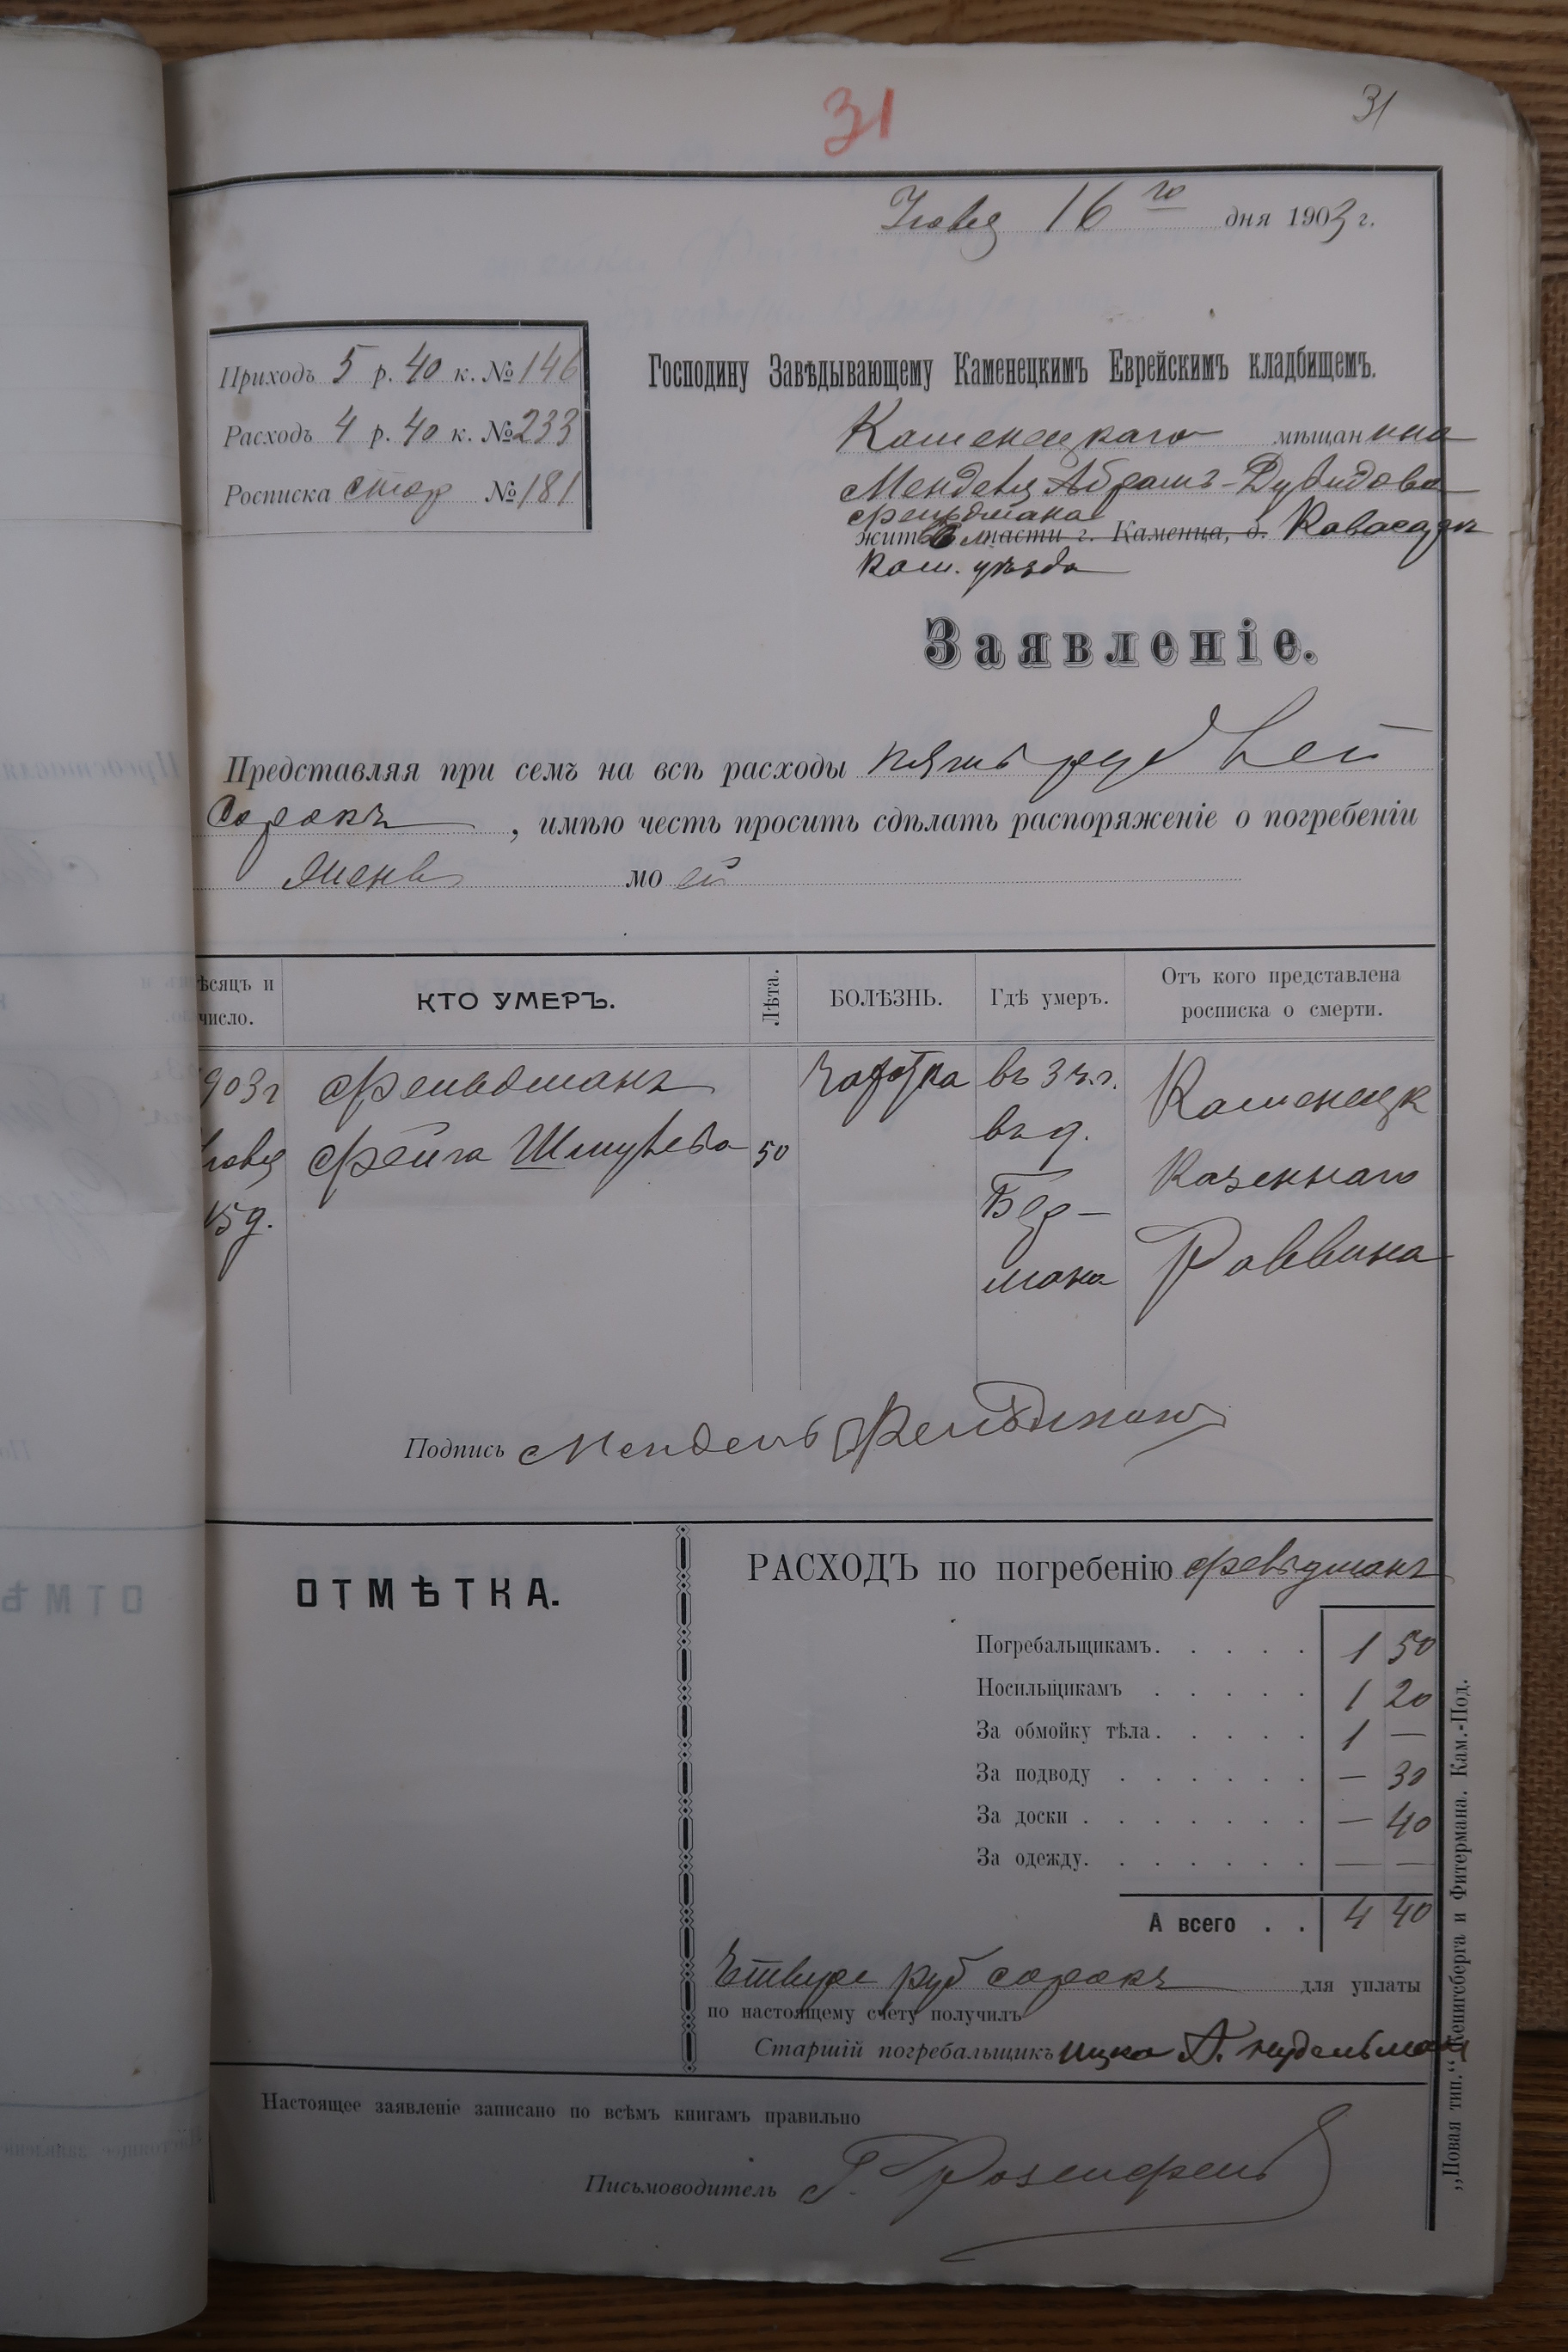 31
31
Іюля 16 го дня 1903 г.
Приходъ 5 р. 40 к. № 146
Расходъ 4 р. 40 к. № 233
Росписка стор № 181
Господину Завѣдывающему Каменецкимъ Еврейскимъ кладбищемъ.
Каменецкаго мѣщанина
Менделя Абрамъ-Дувидова
Фельдмана
жит части г. Каменца, д.
Кам. уѣзда
Заявленіе.
Представляя при семъ на всѣ расходы пять руб
сорокъ, имѣю честь просить сдѣлать распоряженіе о погребеніи
жены моей
ѣсяцъ и число.
КТО УМЕРЪ.
Лѣта.
БОЛѢЗНЬ.
Гдѣ умеръ.
Отъ кого представлена росписка о смерти.
903 г Фельдманъ Чахотка въ 3 ч. г. Каменецк
юля Фейга Шмулева 50 въ д. Казеннаго
15 д. Бер-
мана Раввина
Подпись Мендель Фельдманъ
ОТМѢТКА.
РАСХОДЪ по погребенію Фельдманъ
Погребальщикамъ. . . . . 1 50
Носильщикамъ . . . . . 1 20
За обмойку тѣла. . . . . 1 —
За подводу . . . . . . — 30
За доски . . . . . . . — 40
За одежду. . . . . . . — —
А всего . . 4 40
Четыре руб сорокъ для уплаты
по настоящему счету получилъ
Старшій погребальщикъ Ицко А. Нудельманъ
Настоящее заявленіе записано по всѣмъ книгамъ правильно
Письмоводитель Г. Розенфельд
„Повая тип.“ Кенигсберга и Фитермана. Кам.-Под.